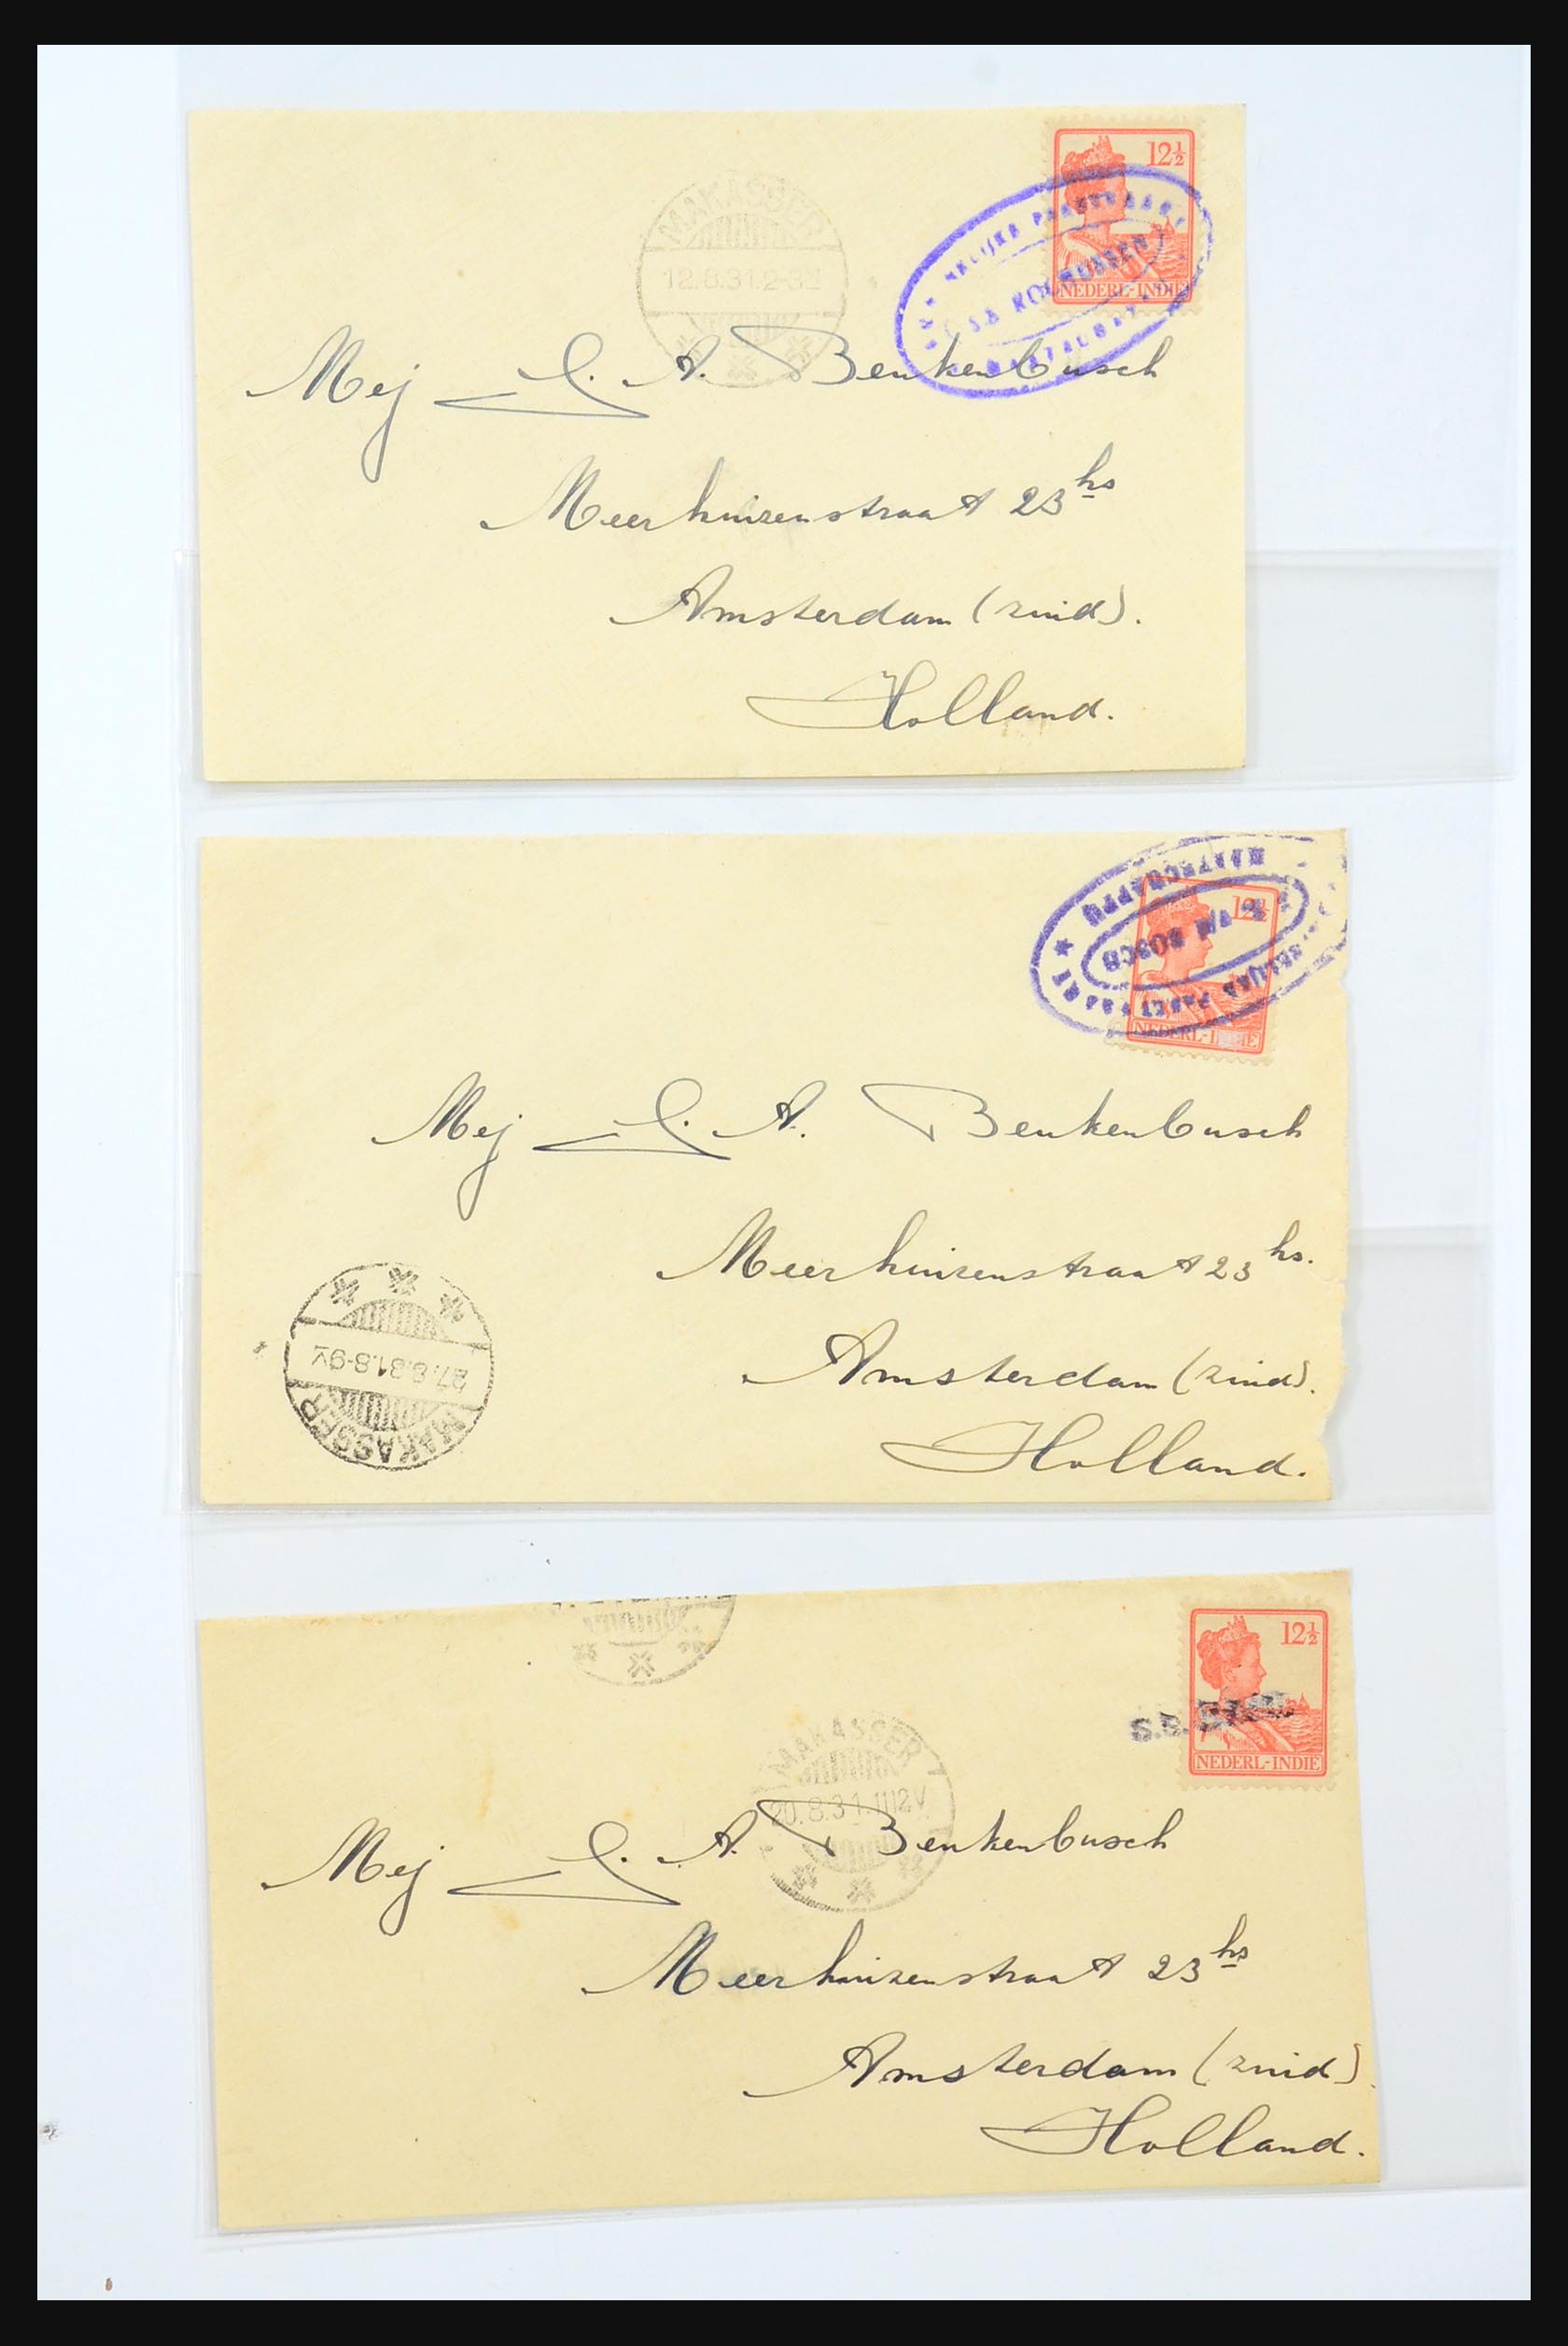 12½
NEDERL-INDIE
MAKASSER
12.8.31.2-3
Mej J. A. Benkenbusch
Meerhuizenstraat 23 hs
Amsterdam (zuid).
Holland.
MAATSCHAPPIJ
BOSCH
12½
NEDERL-INDIE
Mej J. A. Benkenbusch
Meerhuizenstraat 23 hs.
Amsterdam (zuid).
Holland.
27.8.31.8-9V
MAKASSER
12½
S.S.
NEDERL-INDIE
MAKASSER
20.8.31.1112V
Mej J. A. Benkenbusch
Meerhuizenstraat 23 hs
Amsterdam (zuid).
Holland.